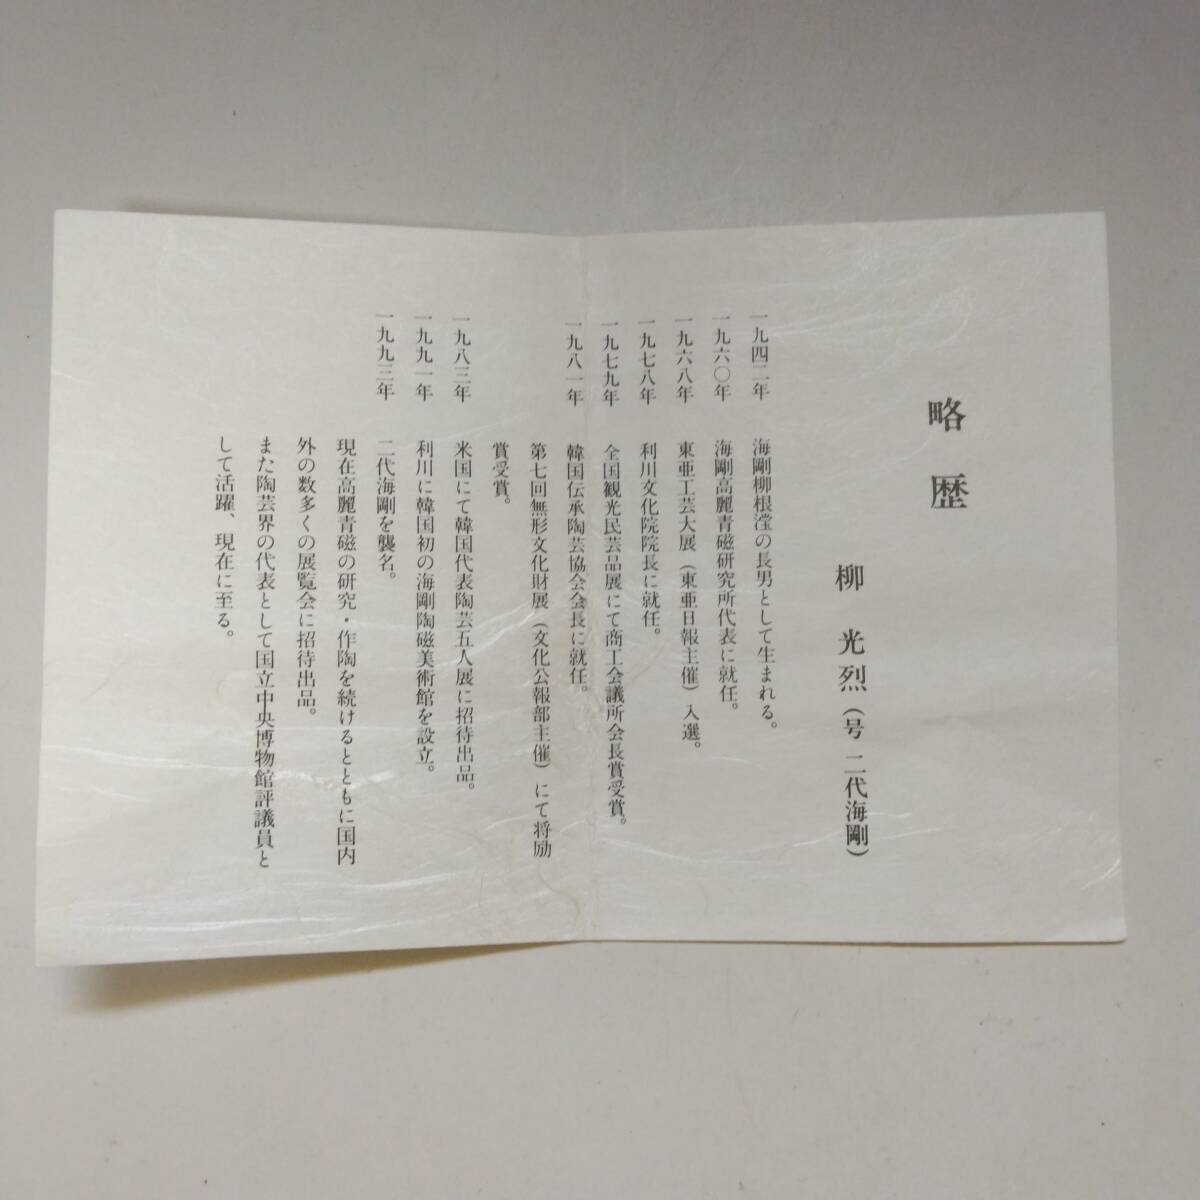 略歴
柳光烈（号 二代海剛）
一九四二年 海剛柳根瀅の長男として生まれる。
一九六〇年 海剛高麗青磁研究所代表に就任。
一九六八年 東亜工芸大展（東亜日報主催）入選。
一九七八年 利川文化院院長に就任。
一九七九年 全国観光民芸品展にて商工会議所会長賞受賞。
一九八一年 韓国伝承陶芸協会会長に就任。
第七回無形文化財展（文化公報部主催）にて将励
賞受賞。
一九八三年 米国にて韓国代表陶芸五人展に招待出品。
一九九一年 利川に韓国初の海剛陶磁美術館を設立。
一九九三年 二代海剛を襲名。
現在高麗青磁の研究・作陶を続けるとともに国内
外の数多くの展覧会に招待出品。
また陶芸界の代表として国立中央博物館評議員と
して活躍、現在に至る。